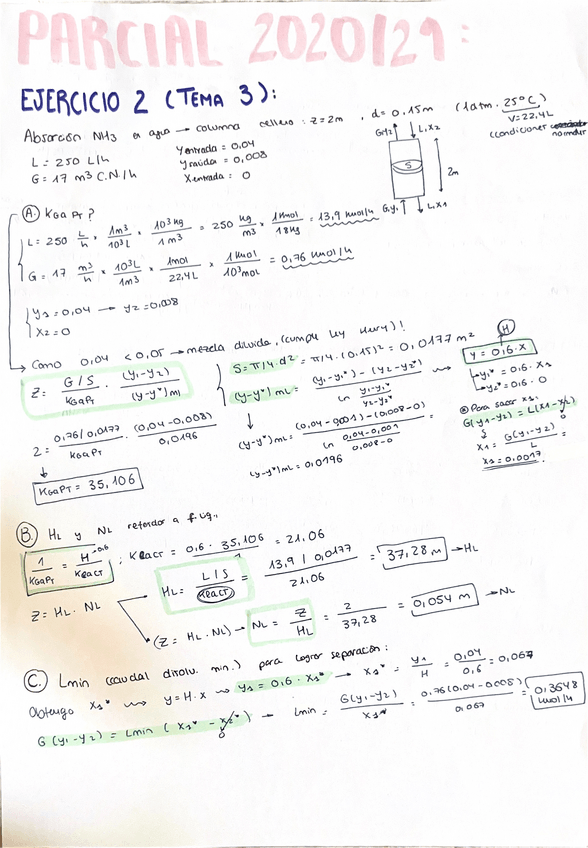 PARCIAL 2020/21:
EJERCICIO 2 (TEMA 3):
Absorción NH3 en agua → columna relleno : z = 2m , d = 0,15m (1atm. 25ºC)
V=22,4L
(condiciones normales
L = 250 L/h
G = 17 m3 C.N/h
Yentrada = 0,04
Ysalida = 0,008
Xentrada = 0
G1Y2 L1X2
S
2m
G1Y1 L1X1
A. KGa PT ?
L = 250 L/h × 1m3/10³L × 10³kg/1m3 = 250 kg/m3 × 1Kmol/18kg = 13,9 kmol/h
G = 17 m3/h × 10³L/1m3 × 1mol/22,4L × 1Kmol/10³mol = 0,76 kmol/h
Y1 = 0,04 → Y2 = 0,008
X2 = 0
Como 0,04 < 0,05 → mezcla diluida, (cumple ley Henry)!
Z = G/S / KGaPT · (Y1-Y2) / (Y-Y*)ml
S = π/4 · d² = π/4 · (0,15)² = 0,0177 m²
(Y-Y*)ML = (Y1-Y1*) - (Y2-Y2*) / ln Y1-Y1*/Y2-Y2*
H
y = 0,6 · x
Y1* = 0,6 · X1
Y2* = 0,6 · 0
Para sacar X1:
G(Y1-Y2) = L(X1-X2)
0
X1 = G(Y1-Y2) / L =
X1 = 0,0017.
2 = 0,76/0,0177 / KGaPT · (0,04-0,008) / 0,0196
(Y-Y*)ML = (0,04-0,001) - (0,008-0) / ln 0,04-0,001/0,008-0 =
(Y-Y*)ML = 0,0196
KGaPT = 35,106
B. HL y NL referidor a f.líq.
1/KGaPT = H/KLaCT ; KLaCT = 0,6 · 35,106 = 21,06
0,6
1
Z = HL · NL
HL = L/S / KLaCT = 13,9 / 0,0177 / 21,06 = 37,28 m → HL
(Z = HL · NL) → NL = Z/HL = 2/37,28 = 0,054 m → NL
C. Lmin (caudal disolu. min.) para lograr separación:
Obtengo X1* → y = H · X → Y1 = 0,6 · X1* → X1* = Y1/H = 0,04/0,6 = 0,067
G (Y1-Y2) = Lmin (X1* - X2*) → Lmin = G(Y1-Y2) / X1* = 0,76(0,04-0,008) / 0,067 = 0,3648 kmol/h
0